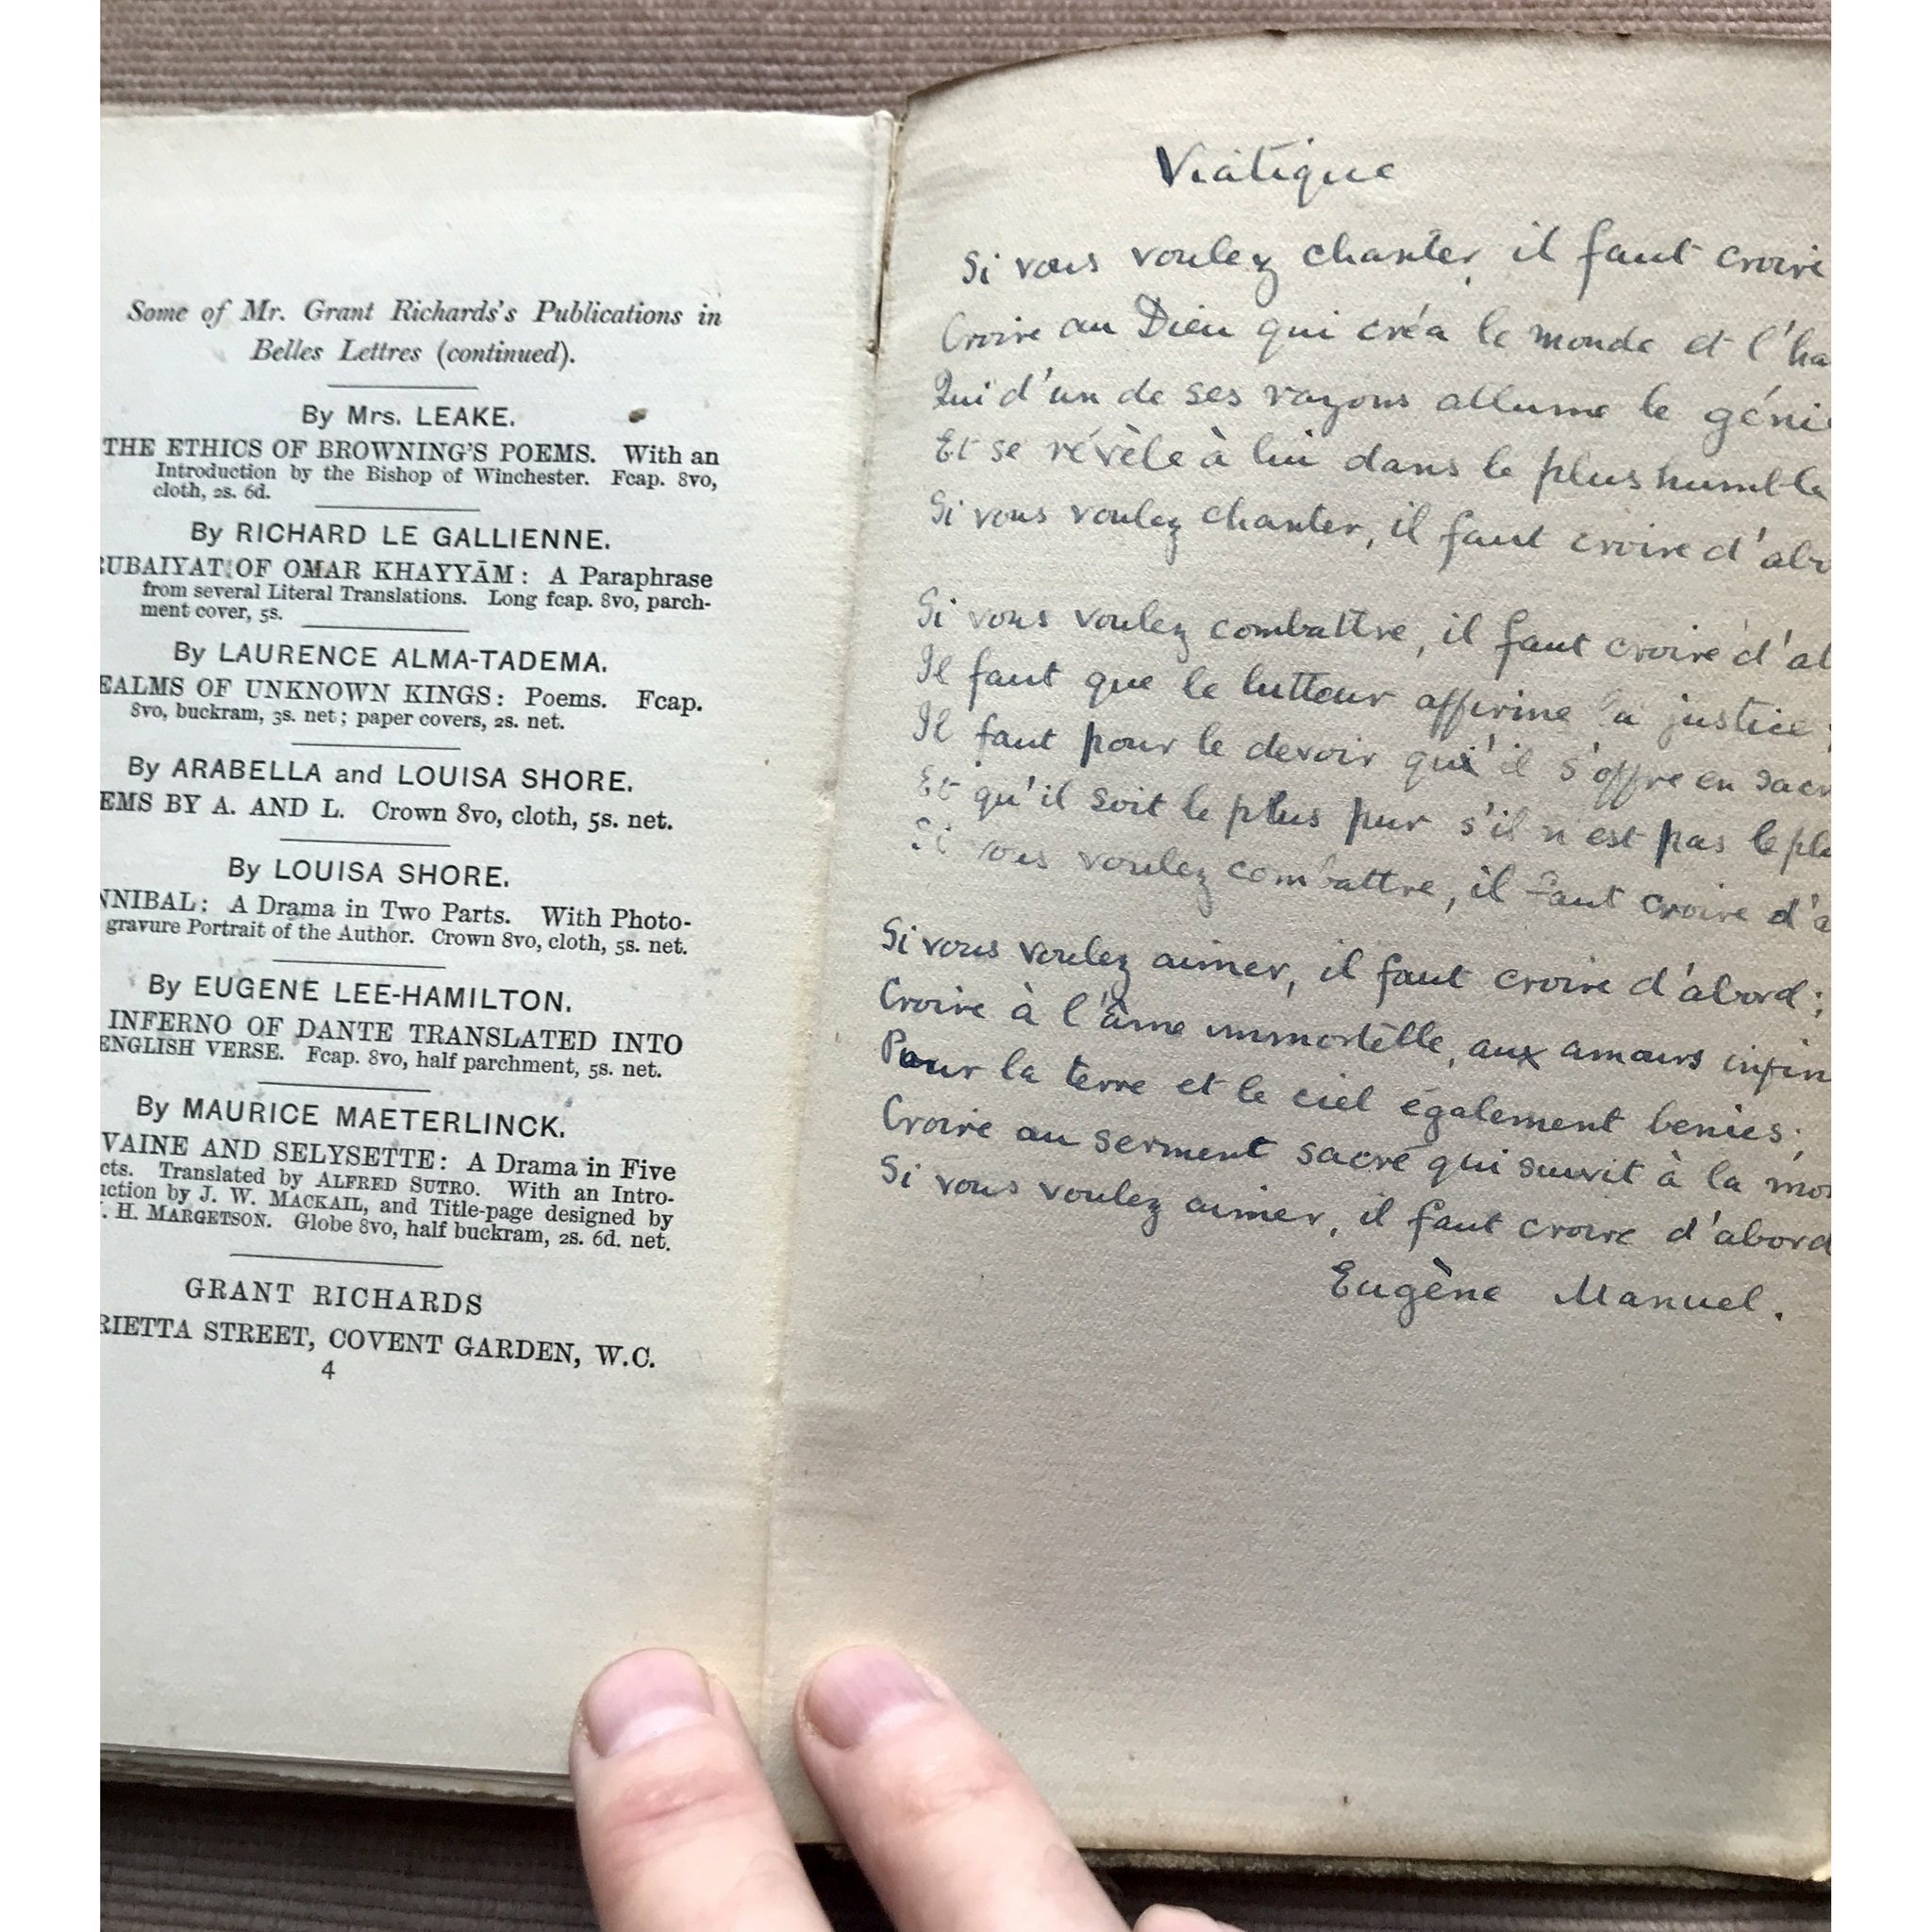 Some of Mr. Grant Richards's Publications in
Belles Lettres (continued).
By Mrs. LEAKE.
THE ETHICS OF BROWNING'S POEMS. With an
Introduction by the Bishop of Winchester. Fcap. 8vo,
cloth, 2s. 6d.
By RICHARD LE GALLIENNE.
RUBAIYAT OF OMAR KHAYYĀM: A Paraphrase
from several Literal Translations. Long fcap. 8vo, parch-
ment cover, 5s.
By LAURENCE ALMA-TADEMA.
EALMS OF UNKNOWN KINGS: Poems. Fcap.
8vo, buckram, 3s. net; paper covers, 2s. net.
By ARABELLA and LOUISA SHORE.
EMS BY A. AND L. Crown 8vo, cloth, 5s. net.
By LOUISA SHORE.
NNIBAL: A Drama in Two Parts. With Photo-
gravure Portrait of the Author. Crown 8vo, cloth, 5s. net.
By EUGENE LEE-HAMILTON.
INFERNO OF DANTE TRANSLATED INTO
ENGLISH VERSE. Fcap. 8vo, half parchment, 5s. net.
By MAURICE MAETERLINCK.
VAINE AND SELYSETTE: A Drama in Five
cts. Translated by ALFRED SUTRO. With an Intro-
uction by J. W. MACKAIL, and Title-page designed by
. H. MARGETSON. Globe 8vo, half buckram, 2s. 6d. net.
GRANT RICHARDS
RIETTA STREET, COVENT GARDEN, W.C.
4
Viatique
Si vous voulez chanter, il faut croire
Croire au Dieu qui créa le monde et l'ha
Qui d'un de ses rayons allume le géni
Et se révèle à lui dans le plus humble
Si vous voulez chanter, il faut croire d'abo
Si vous voulez combattre, il faut croire d'ab
Il faut que le lutteur affirme la justice;
Il faut pour le devoir qu'il s'offre en sacr
Et qu'il soit le plus pur s'il n'est pas le plu
Si vous voulez combattre, il faut croire d'a
Si vous voulez aimer, il faut croire d'abord;
Croire à l'âme immortelle, aux amours infin
Pour la terre et le ciel également benies;
Croire au serment sacré qui survit à la mor
Si vous voulez aimer, il faut croire d'abord
Eugène Manuel.